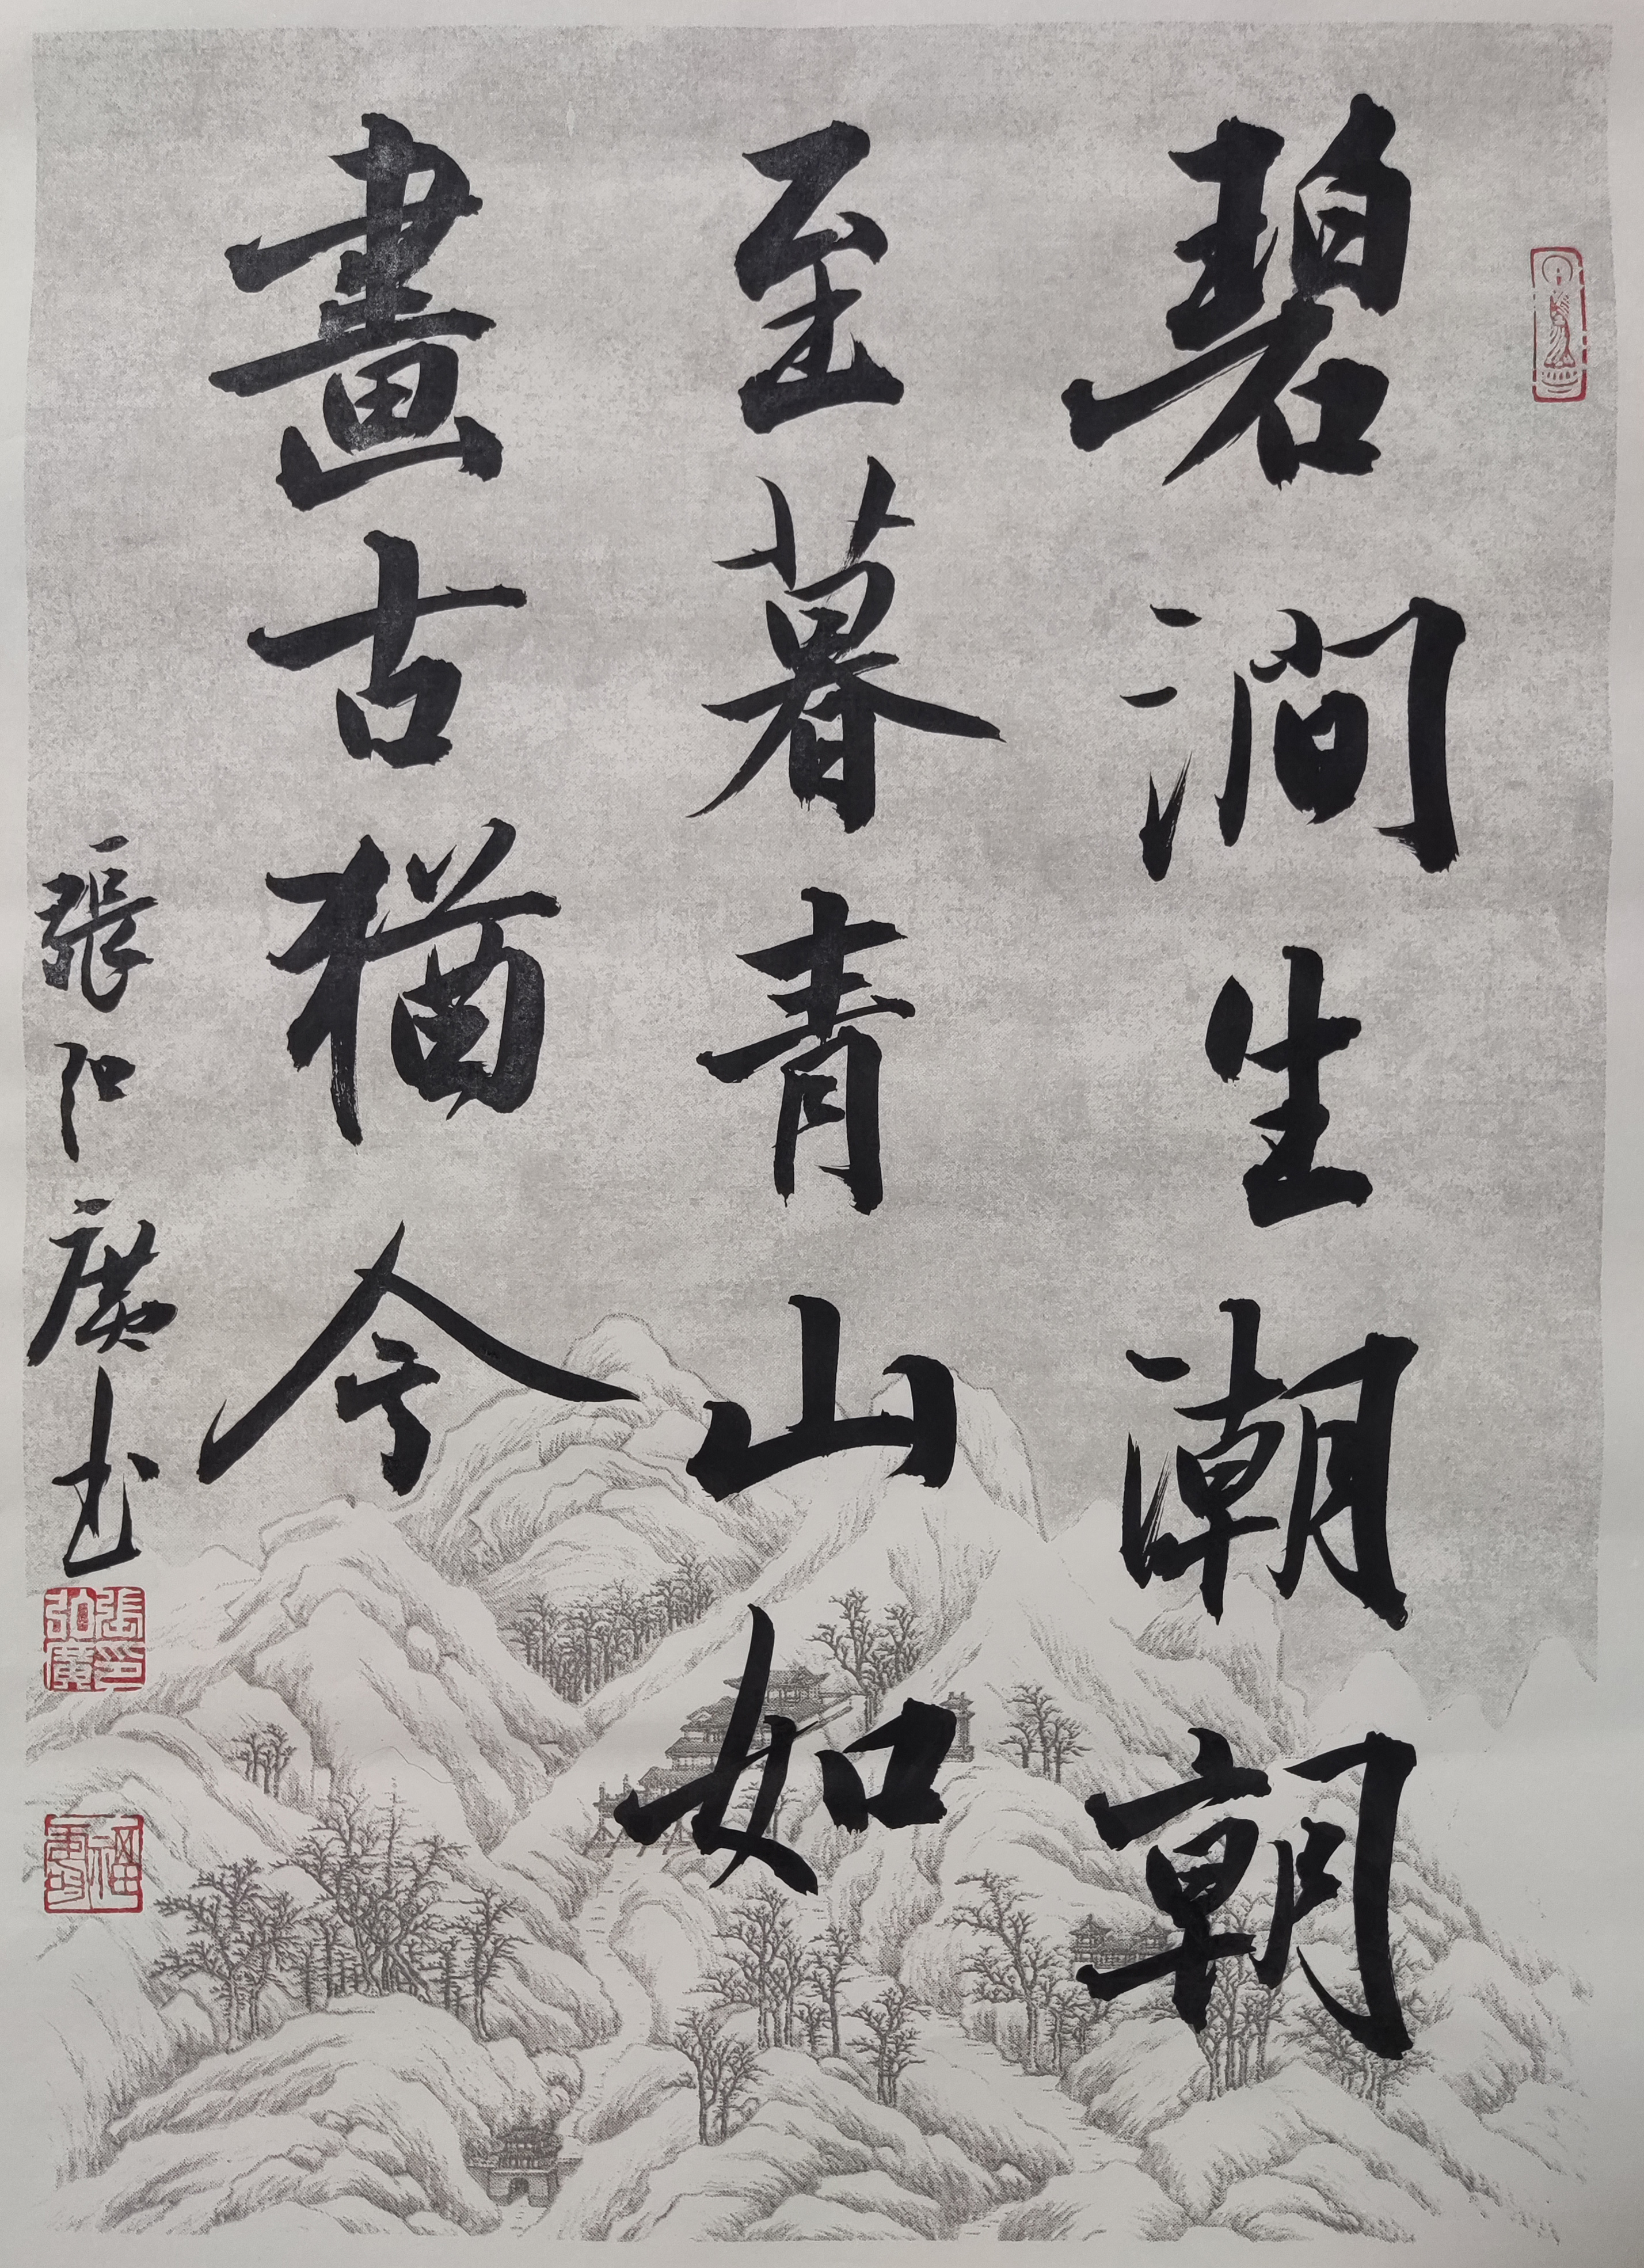 碧澗生潮朝
至暮青山如
畫古猶今
張弘廣书
張印弘廣